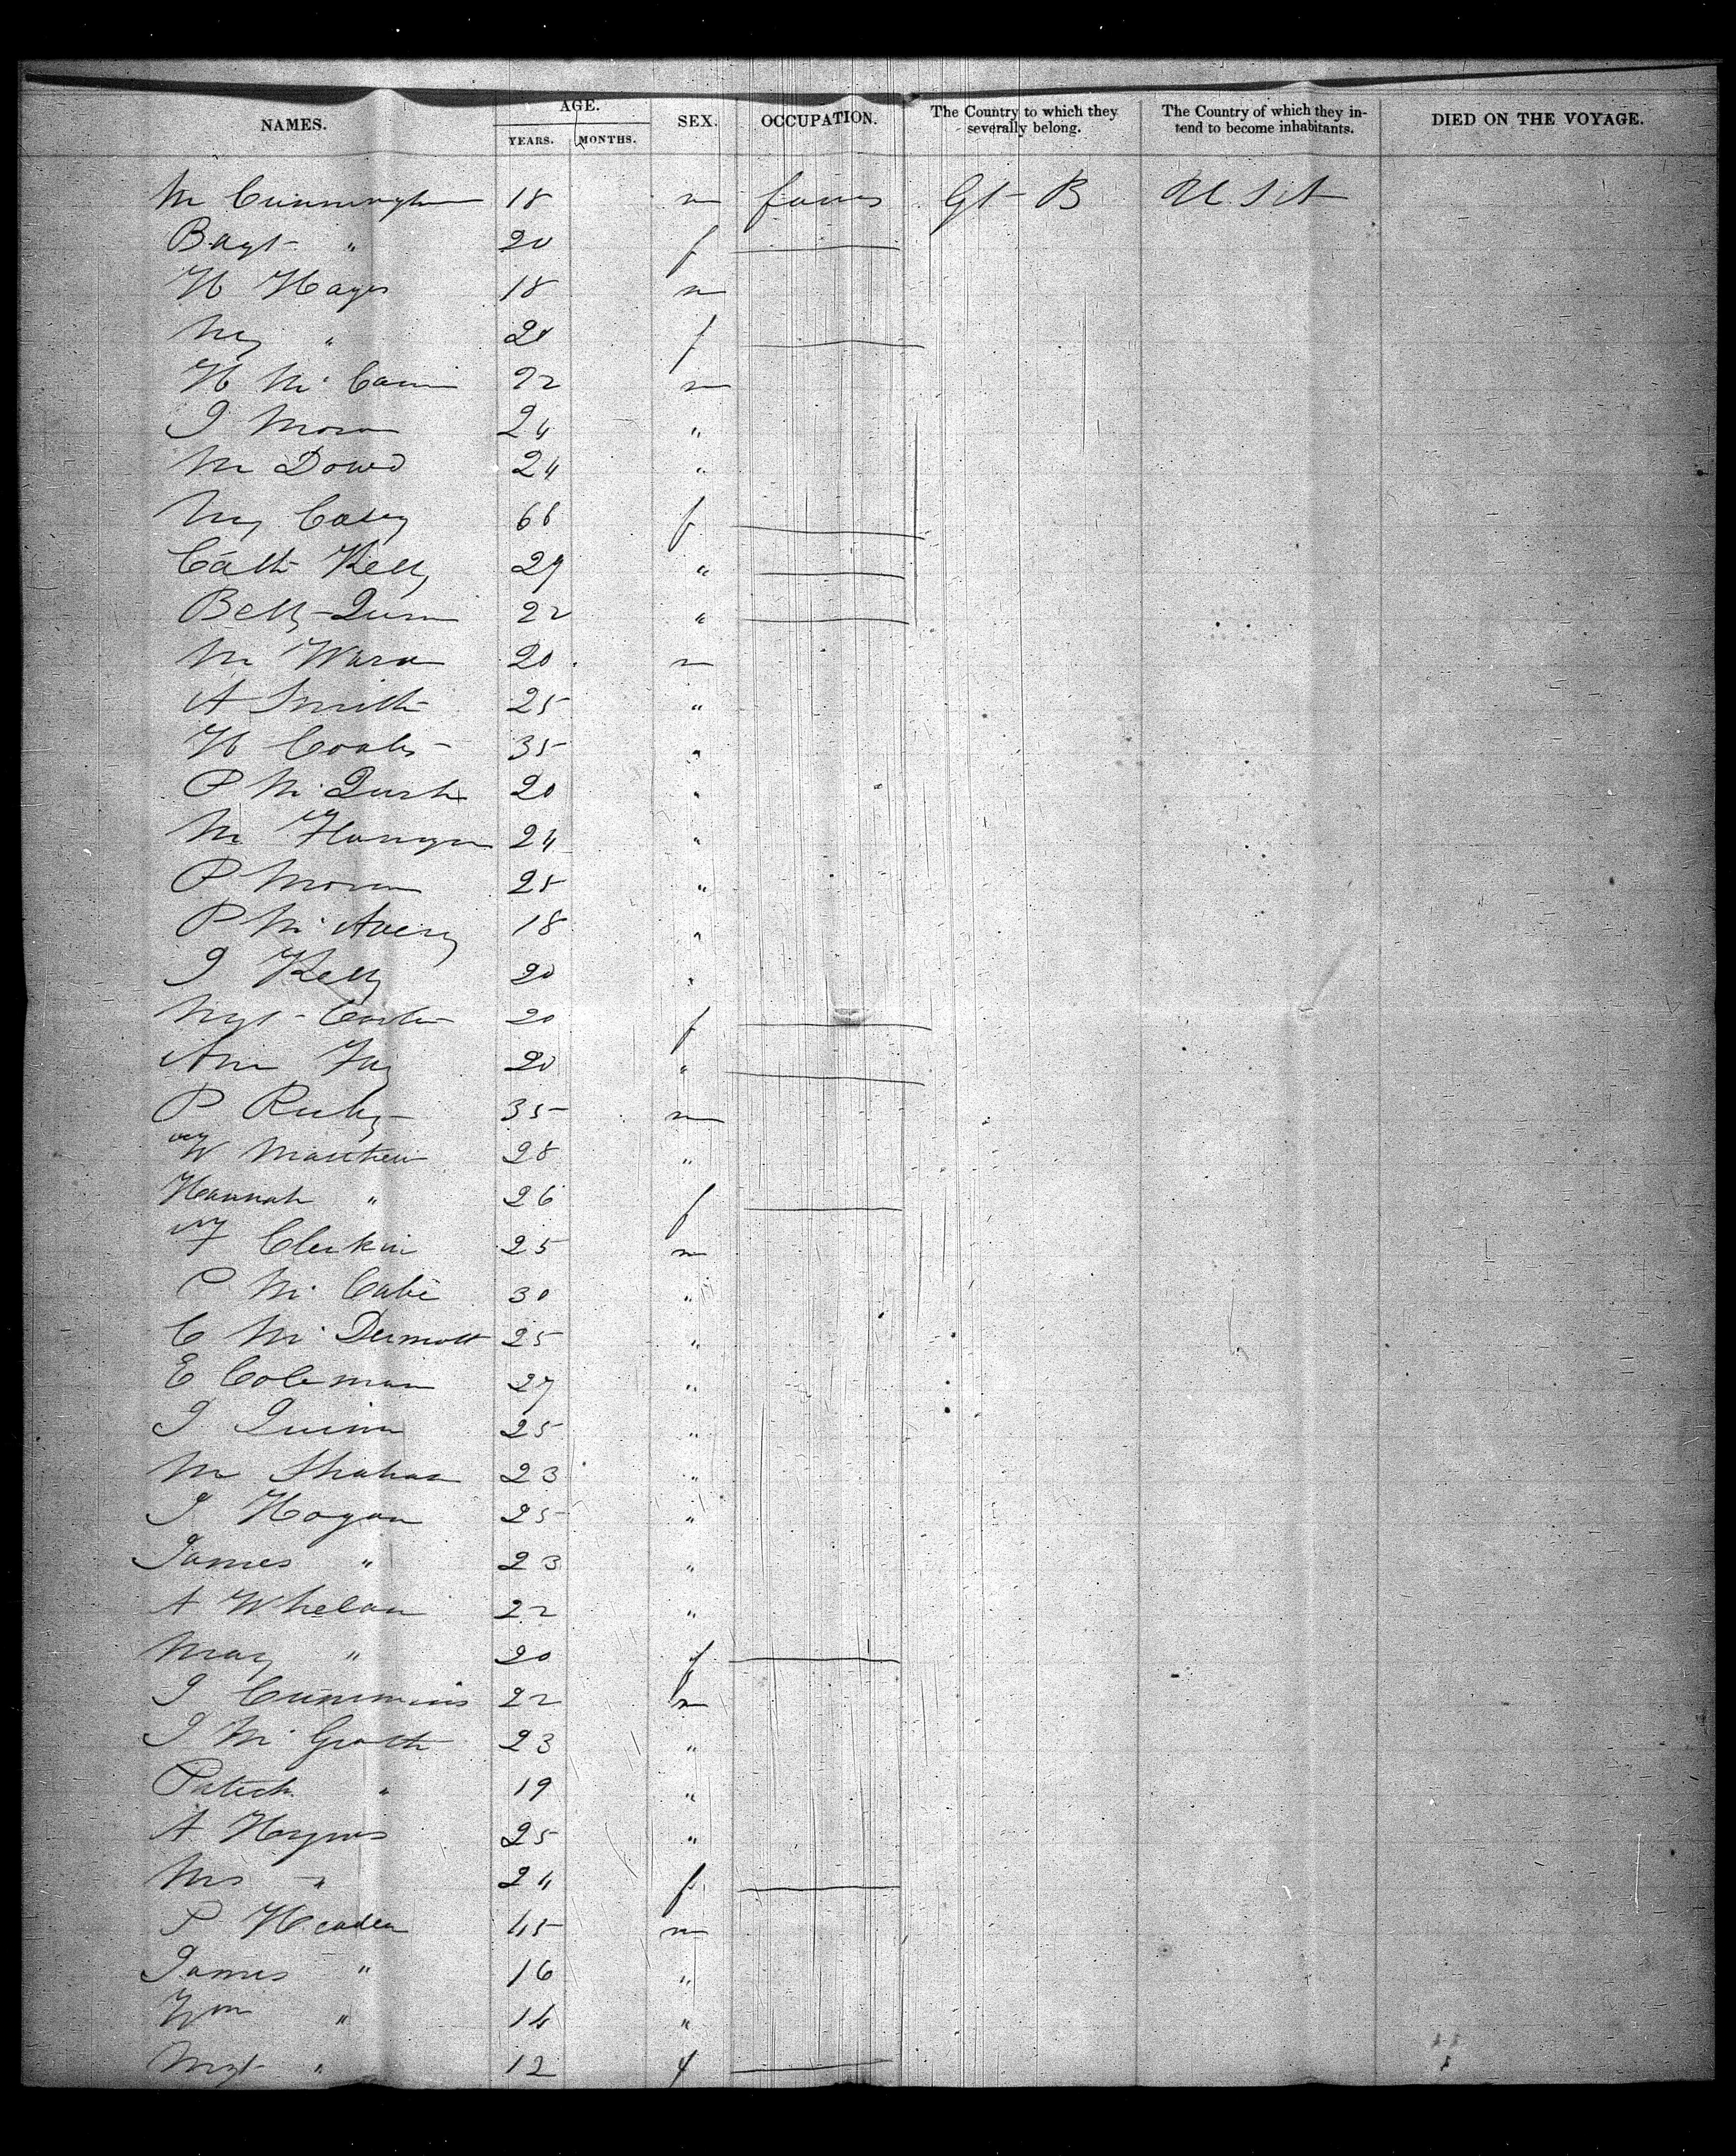 NAMES. AGE. SEX. OCCUPATION. The Country to which they severally belong. The Country of which they intend to become inhabitants. DIED ON THE VOYAGE.
YEARS. MONTHS.
M Cunningham 18 m Gt B U S A
" 20 f
H Hayes 18 m
My " 20 f
H Mc 22 m
J Moran 24 "
M Dowd 24 "
My Casey 66 f
Cath Kelly 29 "
Betty Quinn 22 "
M Ward 20 m
A Smith 25 "
H 35 "
P Mc 20 "
M 24 "
P Moran 25 "
P Mc Avery 18 "
J Kelly 20 "
Mgt 20 f
Ann Fay 20 "
P 35 m
W Matthew 28 "
Hannah " 26 f
Clerkin 25 m
P Mc Cabe 30 "
C Mc Dermott 25 "
E Coleman 27 "
J Quinn 25 "
M 23 "
J Hogan 25 "
James " 23 "
A Whelan 22 "
Mary " 20 f
J Cummins 22 m
J Mc Grath 23 "
Patrick " 19 "
A 25 "
Mrs " 24 f
P Headen 45 m
James " 16 "
Wm " 14 "
Mgt " 12 f